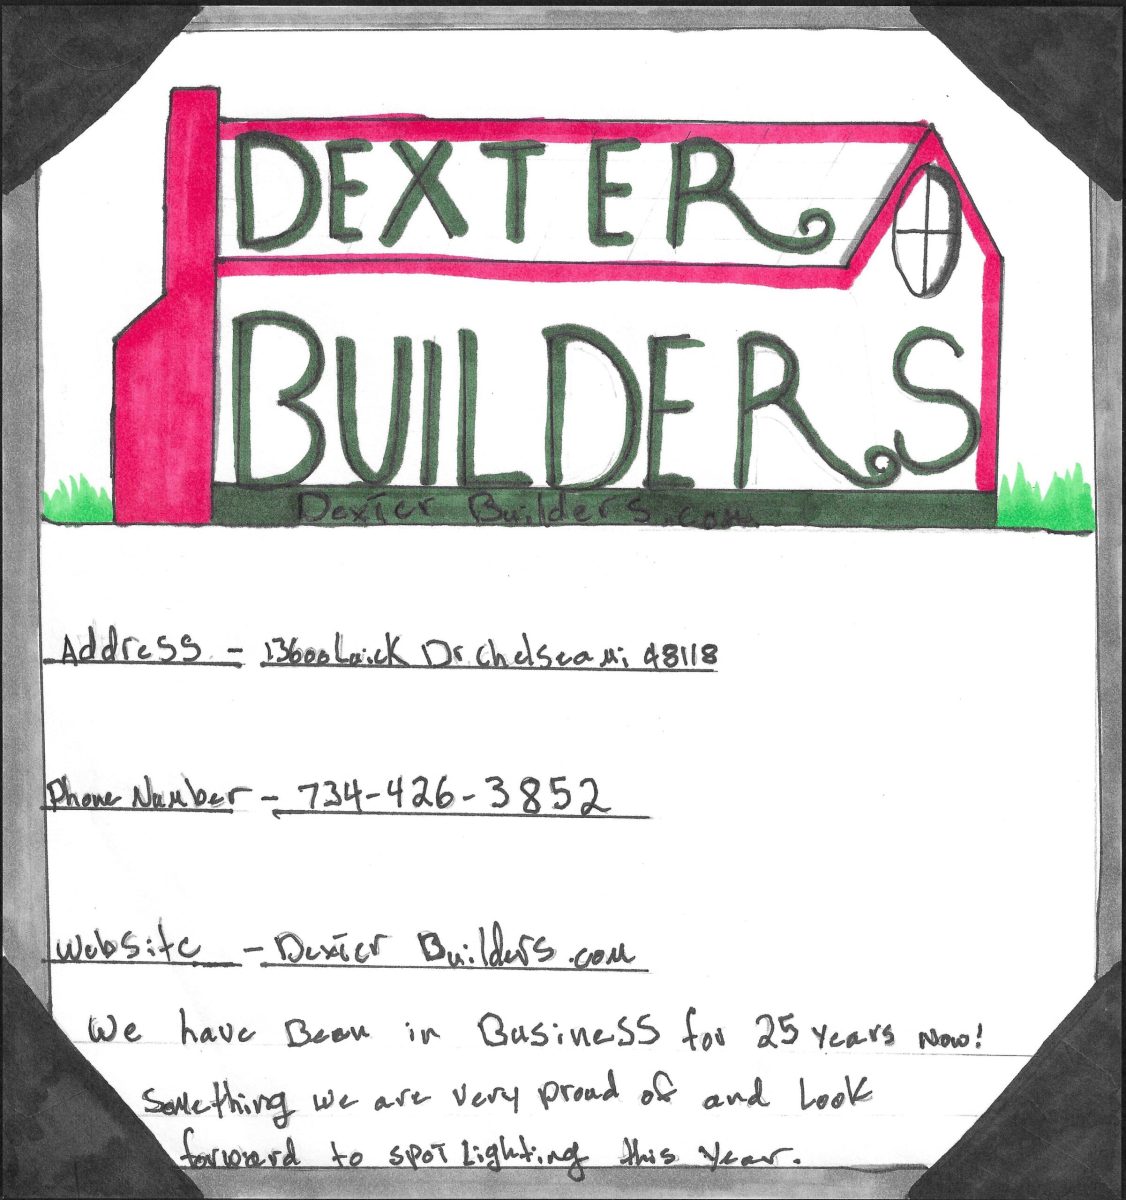 DEXTER
BUILDERS
Dexter Builders.com
Address - 13600 Luick Dr Chelsea Mi 48118
Phone Number - 734-426-3852
Website - Dexter Builders.com
We have Been in Business for 25 years Now!
Something we are very proud of and Look
forward to spot Lighting this year.